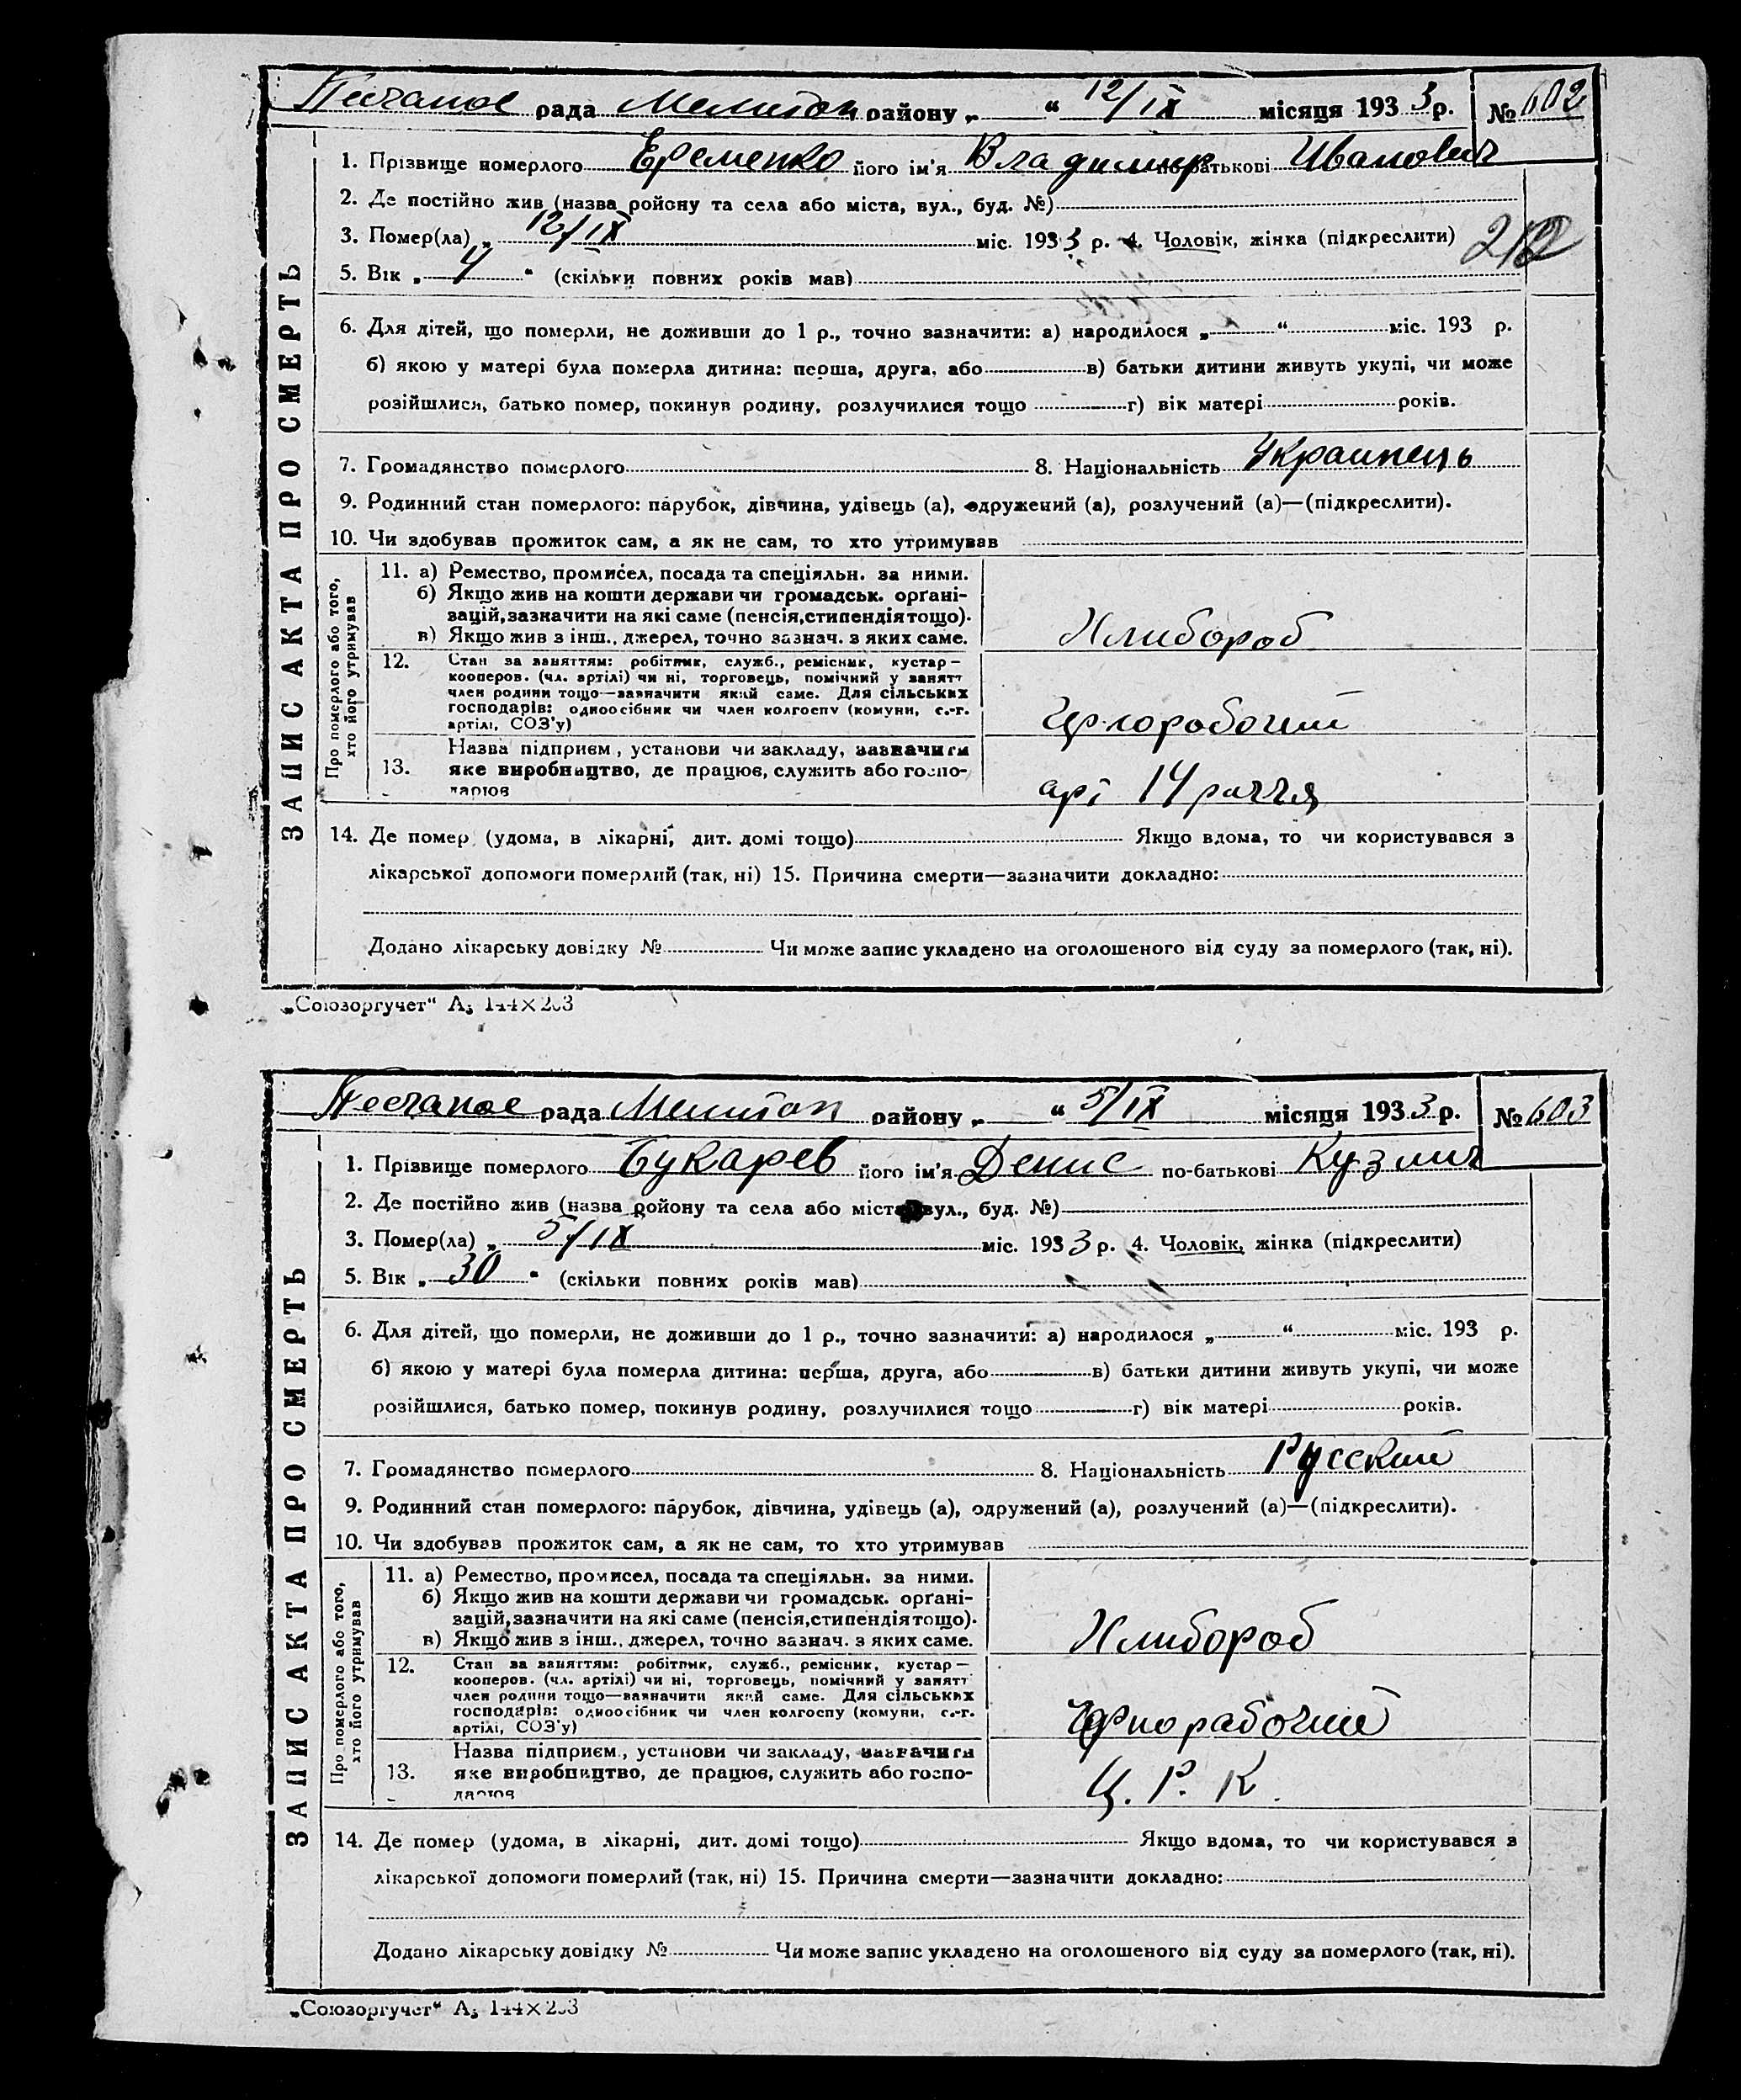 Песчаное рада Мелитоп району „ “ 12/IX місяця 1933 р. № 602
1. Прізвище померлого Еременко його ім'я Владимир по-батькові Иванович
2. Де постійно жив (назва ройону та села або міста, вул., буд. №)
3. Помер(ла) „ 12/IX міс. 1933 р. 4. Чоловік, жінка (підкреслити)
5. Вік „ 4 “ (скільки повних років мав)
6. Для дітей, що померли, не доживши до 1 р., точно зазначити: а) народилося „ “ міс. 193 р.
б) якою у матері була померла дитина: перша, друга, або в) батьки дитини живуть укупі, чи може
розійшлися, батько помер, покинув родину, розлучилися тощо г) вік матері років.
7. Громадянство померлого 8. Національність Украинець
9. Родинний стан померлого: парубок, дівчина, удівець (а), одружений (а), розлучений (а)—(підкреслити).
10. Чи здобував прожиток сам, а як не сам, то хто утримував
ЗАПИС АКТА ПРО СМЕРТЬ
Про померлого або того,
хто його утримував
11. а) Ремество, промисел, посада та спеціяльн. за ними.
б) Якщо жив на кошти держави чи громадськ. орґані-
зацій, зазначити на які саме (пенсія, стипендія тощо).
в) Якщо жив з інш., джерел, точно зазнач. з яких саме.
Хлибороб
12. Стан за заняттям: робітник, служб., ремісник, кустар—
кооперов. (чл. артілі) чи ні, торговець, помічний у занятт
член родини тощо—зазначити який саме. Для сільських
господарів: одноосібник чи член колгоспу (комуни, с.-г.
артілі, СОЗ'у)
13. Назва підприєм, установи чи закладу, зазначити
яке виробництво, де працює, служить або госпо-
дарює
арт 14 риччя
14. Де помер (удома, в лікарні, дит. домі тощо) Якщо вдома, то чи користувався з
лікарської допомоги померлий (так, ні) 15. Причина смерти—зазначити докладно:
Додано лікарську довідку № Чи може запис укладено на оголошеного від суду за померлого (так, ні).
„Союзоргучет“ А5 144×203
Песчаное рада Мелитоп району „ “ 5/IX місяця 1933 р. № 603
1. Прізвище померлого Букарев його ім'я Денис по-батькові Кузмич
2. Де постійно жив (назва ройону та села або міста, вул., буд. №)
3. Помер(ла) „ 5/IX міс. 1933 р. 4. Чоловік, жінка (підкреслити)
5. Вік „ 30 “ (скільки повних років мав)
6. Для дітей, що померли, не доживши до 1 р., точно зазначити: а) народилося „ “ міс. 193 р.
б) якою у матері була померла дитина: перша, друга, або в) батьки дитини живуть укупі, чи може
розійшлися, батько помер, покинув родину, розлучилися тощо г) вік матері років.
7. Громадянство померлого 8. Національність Русский
9. Родинний стан померлого: парубок, дівчина, удівець (а), одружений (а), розлучений (а)—(підкреслити).
10. Чи здобував прожиток сам, а як не сам, то хто утримував
ЗАПИС АКТА ПРО СМЕРТЬ
Про померлого або того,
хто його утримував
11. а) Ремество, промисел, посада та спеціяльн. за ними.
б) Якщо жив на кошти держави чи громадськ. орґані-
зацій, зазначити на які саме (пенсія, стипендія тощо).
в) Якщо жив з інш., джерел, точно зазнач. з яких саме.
Хлибороб
12. Стан за заняттям: робітник, служб., ремісник, кустар—
кооперов. (чл. артілі) чи ні, торговець, помічний у занятт
член родини тощо—зазначити який саме. Для сільських
господарів: одноосібник чи член колгоспу (комуни, с.-г.
артілі, СОЗ'у)
Чернорабочий
13. Назва підприєм, установи чи закладу, зазначити
яке виробництво, де працює, служить або госпо-
дарює
Ц. Р. К.
14. Де помер (удома, в лікарні, дит. домі тощо) Якщо вдома, то чи користувався з
лікарської допомоги померлий (так, ні) 15. Причина смерти—зазначити докладно:
Додано лікарську довідку № Чи може запис укладено на оголошеного від суду за померлого (так, ні).
„Союзоргучет“ А5 144×203